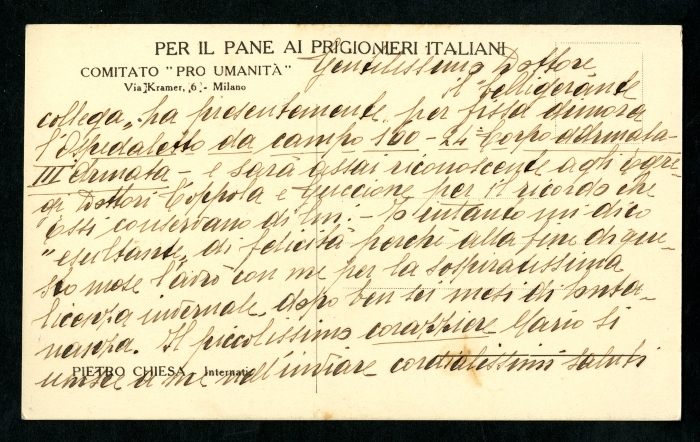 PER IL PANE AI PRIGIONIERI ITALIANI
COMITATO "PRO UMANITÀ"
Via Kramer, 6 - Milano
Gentilissimo Dottore
il "belligerante
collega" ha presentemente per fissa dimora
l'Ospedaletto da campo 100 - 24° Corpo d'Armata
III Armata - e sarà assai riconoscente agli Egre-
gi Dottori Coppola e Guccione per il ricordo che
essi conservano di lui. - Io intanto mi dico
"esultante" di felicità perchè alla fine di que-
sto mese l'avrò con me per la sospiratissima
licenza invernale dopo ben sei mesi di lonta-
nanza. Il piccolissimo corazziere Mario si
unisce a me nell'inviare cordialissimi saluti
PIETRO CHIESA - Internati